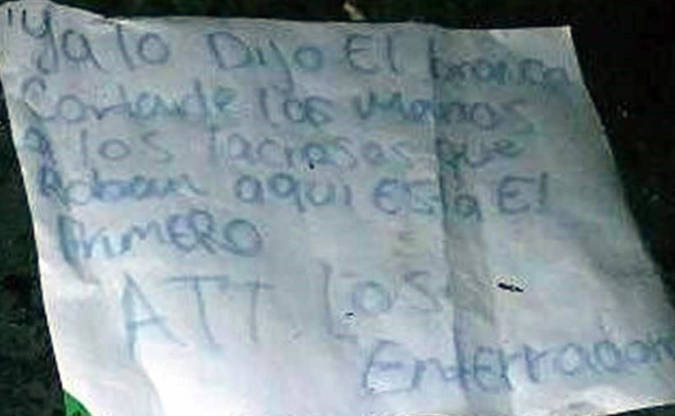 Ya lo Dijo El bronca
Cortarle las manos
a los lacrosos que
Roban aqui Esta El
PrimERO
ATT. LOS
EntErrador